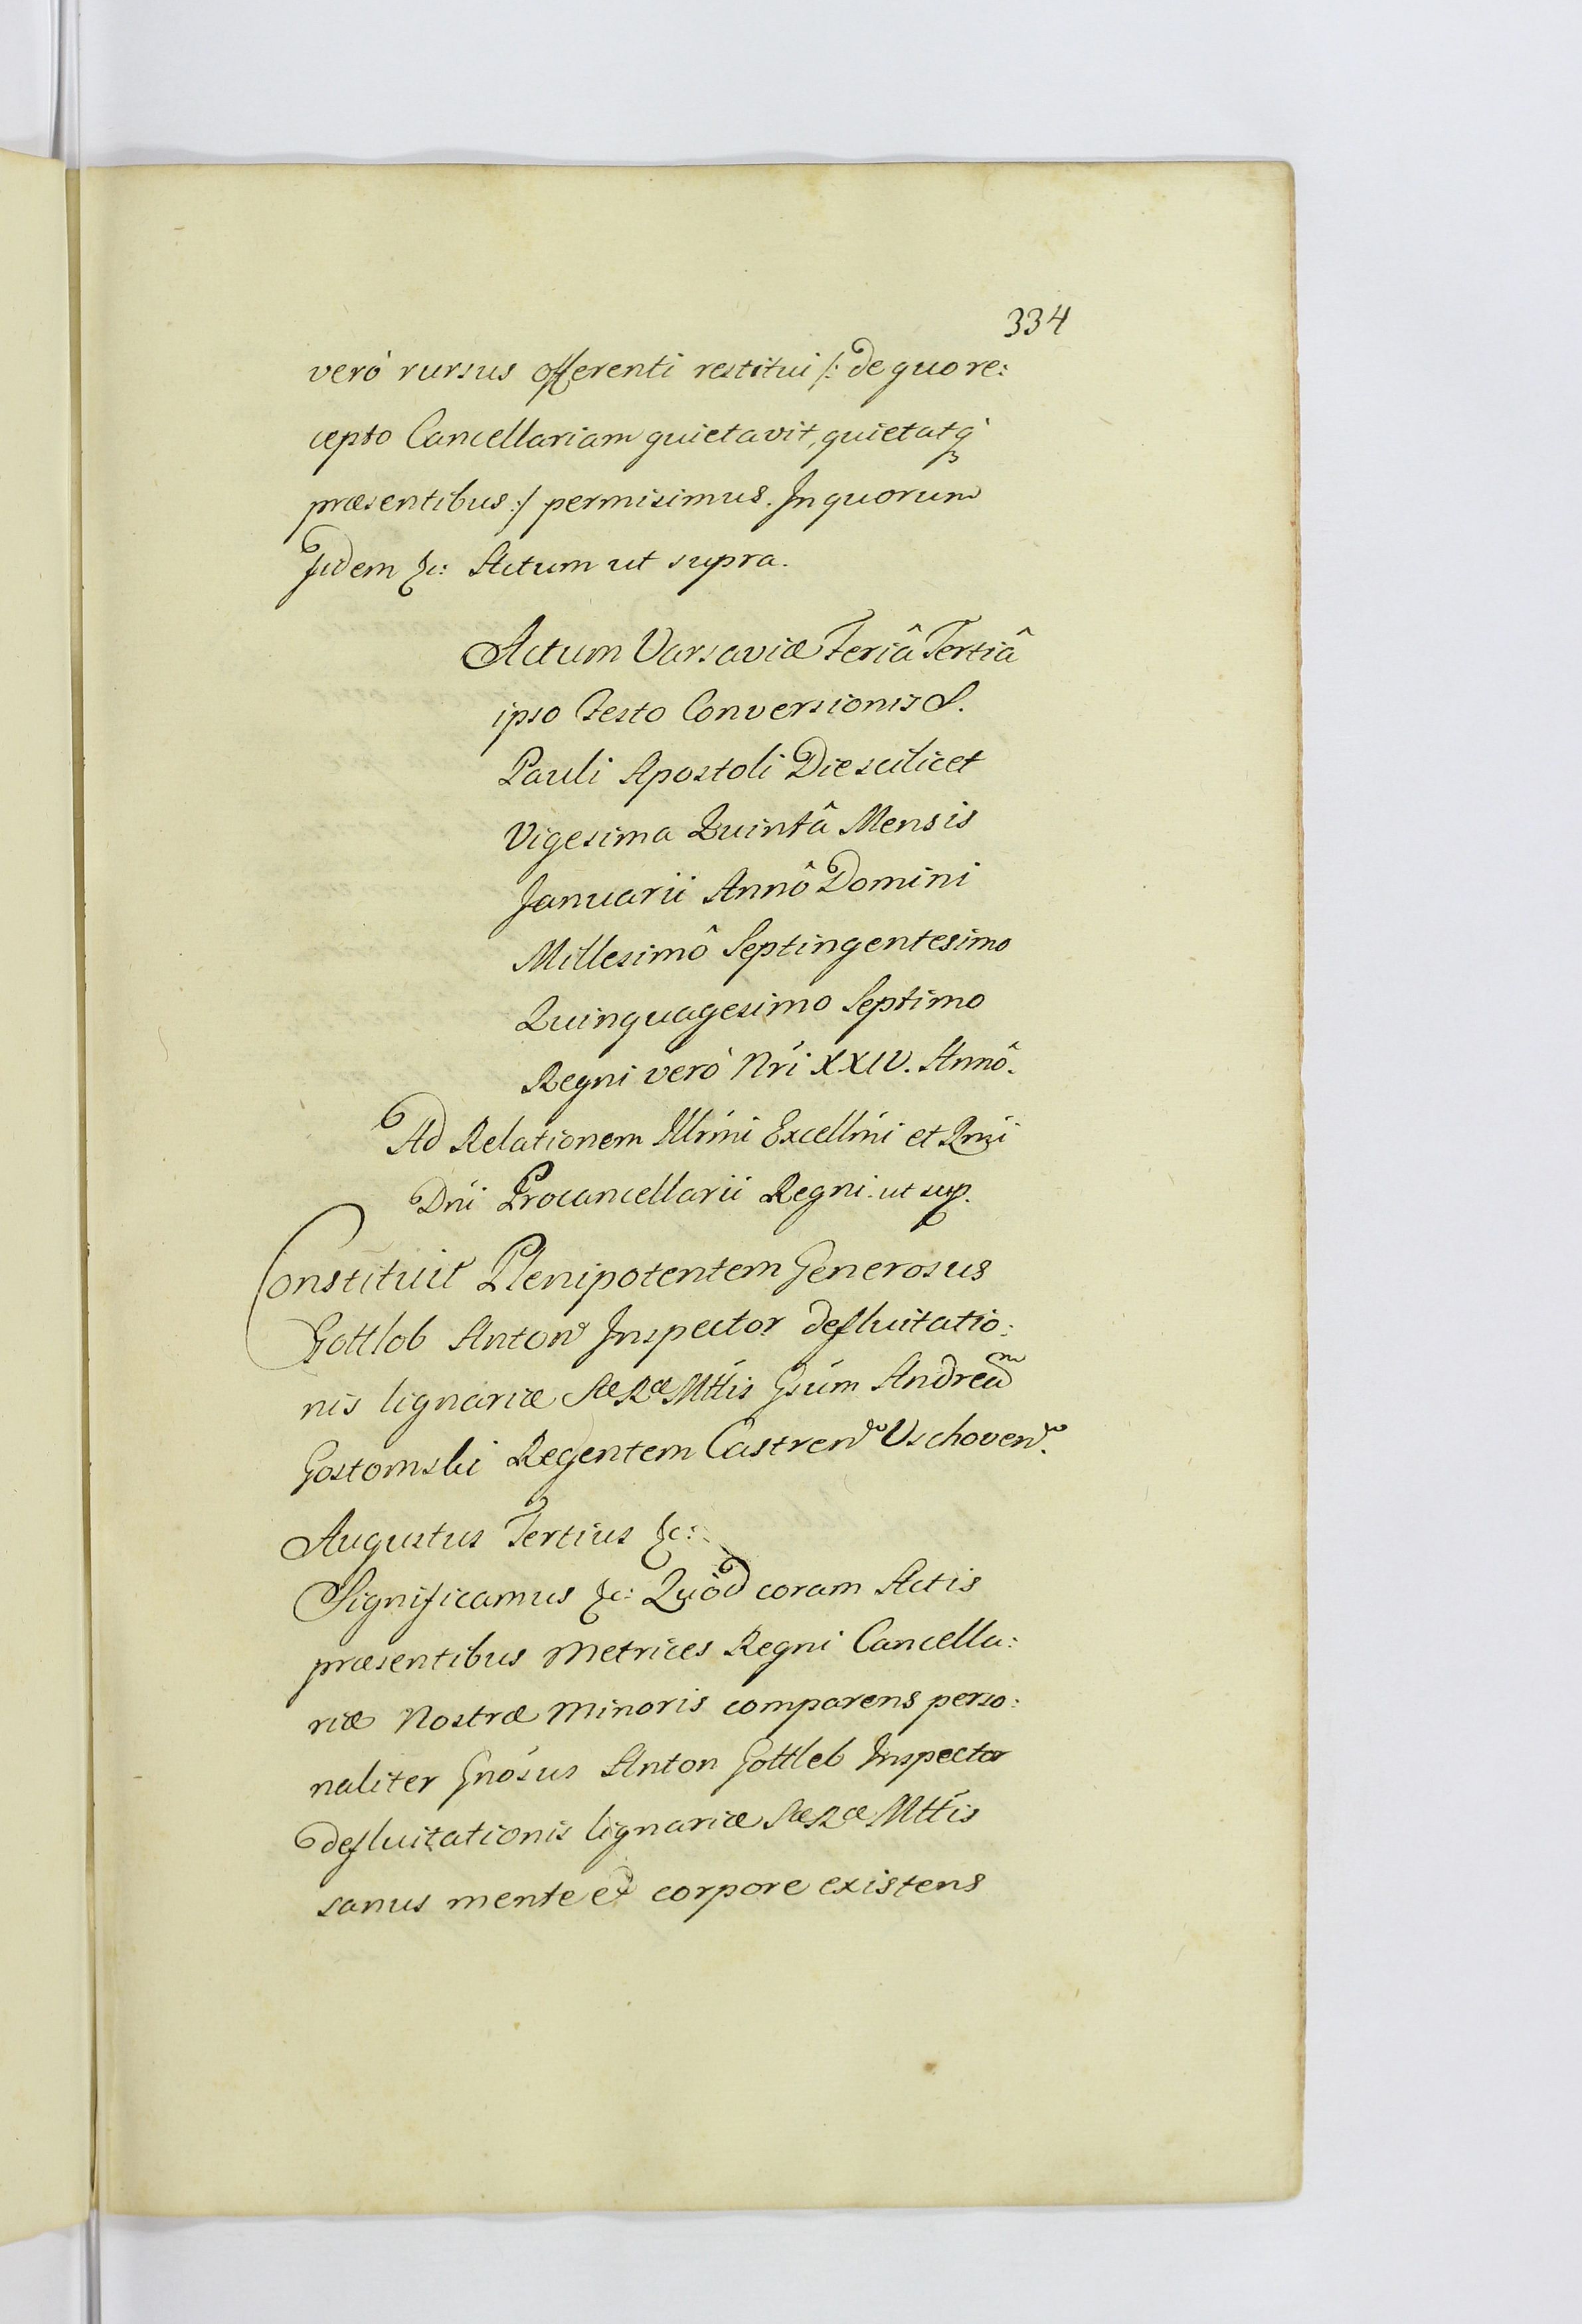 334
verò rursus offerenti restitui /: de quo re:
cepto Cancellariam quietavit, quietatq
præsentibus :/ permisimus. In quorum
fidem &c: Actum ut supra.
Actum Varsaviæ Feriâ Tertiâ
ipso Festo Conversionis S.
Pauli Apostoli Die scilicet
Vigesima Quintâ Mensis
Januarii Annô Domini
Millesimô Septingentesimo
Quinquagesimo Septimo
Regni verò Nri XXIV. Annô.
Ad Relationem Illrmi Excellmi et Rmi
Dni Procancellarii Regni ut sup.
Constituit Plenipotentem Generosus
Gottlob Anton Inspector defluitatio:
nis lignariæ SæRæMttis Gsum Andream
Gostomski Regentem Castren Vschoven.
Augustus Tertius &c:
Significamus &c: Quòd coram Actis
præsentibus Metrices Regni Cancella:
riæ Nostræ Minoris comparens perso:
naliter Gnosus Anton Gottleb Inspector
defluitationis lignariæ SæRæMttis
sanus mente et corpore existens